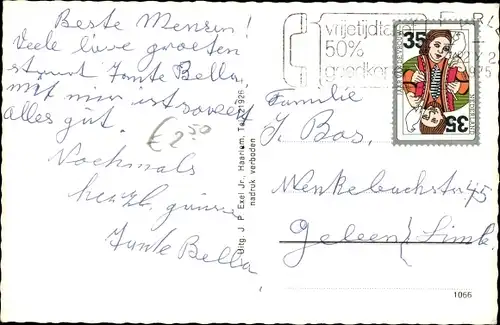 Beste Mensen!
Viele liwe groeten
stuurt Tante Bella,
mit mir ist soweit
alles gut.
€ 2,50
Nochmals
herzl. grüsse
Tante Bella
Uitg. J. P. Exel Jr., Haarlem, Tel. 21926
nadruk verboden
vrijetijdta
50%
goedkor
35
35
Familie
J. Bos,
Geleen Limb.
1066